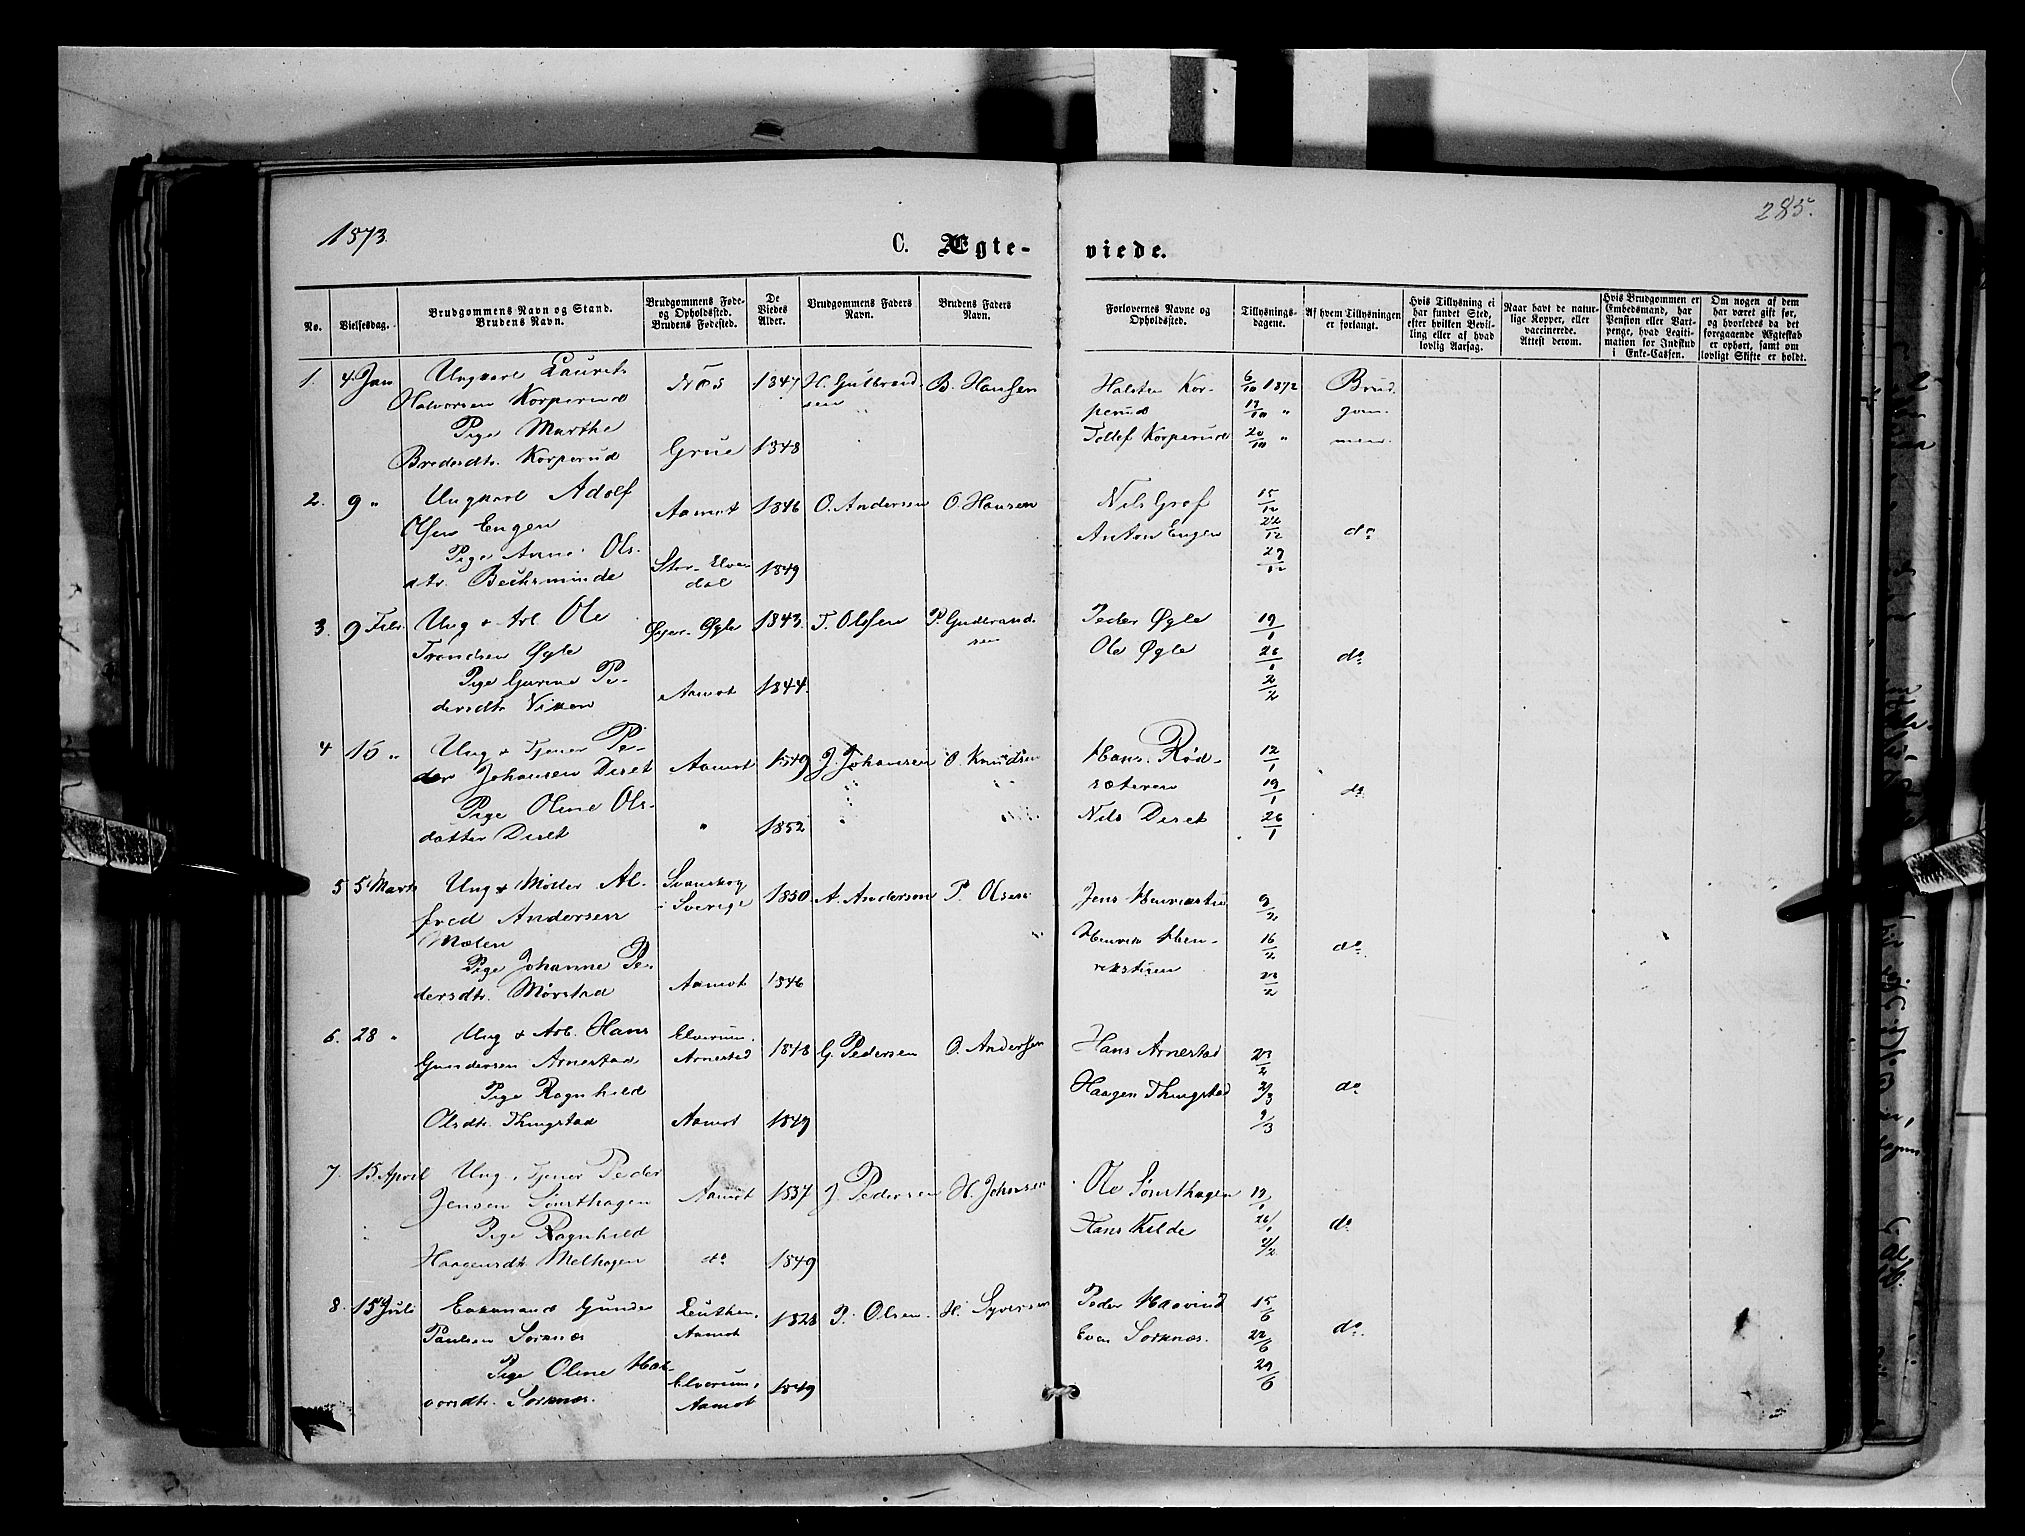 1873.
285.
C. Ægte-
viede.
No.
Vielsesdag.
Brudgommens Navn og Stand.
Brudens Navn.
Brudgommens Føde-
og Opholdssted.
Brudens Fødested.
De
Viedes
Alder.
Brudgommens Faders
Navn.
Brudens Faders
Navn.
Forlovernes Navne og
Opholdssted.
Tillysnings-
dagene.
Af hvem Tillysningen
er forlangt.
Hvis Tillysning ei
har fundet Sted,
efter hvilken Bevil-
ling eller af hvad
lovlig Aarsag.
Naar havt de natur-
lige Kopper, eller
vaccinerede.
Attest derom.
Hvis Brudgommen er
Embedsmand, har
Pension eller Vart-
penge, hvad Legiti-
mation for Indskud
i Enke-Cassen.
Om nogen af dem
har været gift før,
og hvorledes da det
foregaaende Ægteskab
er ophørt, samt om
lovligt Skifte er holdt.
1. 4 Jan Ungkarl Laurits
Halvorsen Korperud
Næs 1847 H. Gulbrand-
sen
B. Hansen
Pige Marthe
Bredesdtr. Korperud
Grue 1848
Halsten Kor-
perud
Tollef Korperud
6/10 1872
13/10 "
20/10 "
Brud
gom
men
2. 9 " Ungkarl Adolf
Olsen Engen
Aamot 1846 O. Andersen O. Hansen
Pige Anne Ols-
dtr. Bechsminde
Stor-Elve-
dal
1849
Nils Graf
Anton Engen
15/12
22/12
29/12
do
3. 9 Febr. Ung & Arb. Ole
Trondsen Øgle
Øyer. Øgle 1843. T. Olsen P. Gudbrand-
sen
Pige Gurine Pe-
dersdtr. Viken
Aamot 1844.
Peder Øgle
Ole Øgle
19/1
26/1
2/2
do
4 16 " Ung & Tjener Pe-
der Johansen Deset
Aamot 1849 J. Johansen O. Knudsen
Pige Oline Ols-
datter Deset
" 1852
Hans Rød-
sæteren
Nils Deset
12/1
19/1
26/1
do
5 5 Marts Ung & Møller Al-
fred Andersen
Mølen
Svanskog
i Sverige
1850 A. Andersen P. Olsen
Pige Johanne Pe-
dersdtr. Mørstad
Aamot 1846
Jens
Henrik Hen-
riksstuen
9/2
16/2
23/2
do
6. 28 " Ung & Arb. Hans
Gundersen Arnestad
Elverum.
Arnestad
1848 G. Pedersen O. Andersen
Pige Ragnhild
Olsdtr. Thingstad
Aamot 1849
Hans Arnestad
Haagen Thingstad
23/2
2/3
9/3
do
7. 15 April Ung & Tjener Peder
Jensen Sønsthagen
Aamot 1837 J. Pedersen H. Johnsen
Pige Ragnhild
Haagensdtr Melhagen
do 1849
Ole Sønsthagen
Hans Kilde
19/1
26/1
2/2
do
8. 15 Juli Enkemand Gunder
Paulsen Sorknæs
Leuthen.
Aamot
1828 P. Olsen. H. Syversen
Pige Oline Hal-
vorsdtr. Sorknæs.
Elverum,
Aamot
1849
Peder Haavind
Even Sorknæs.
15/6
22/6
29/6
do